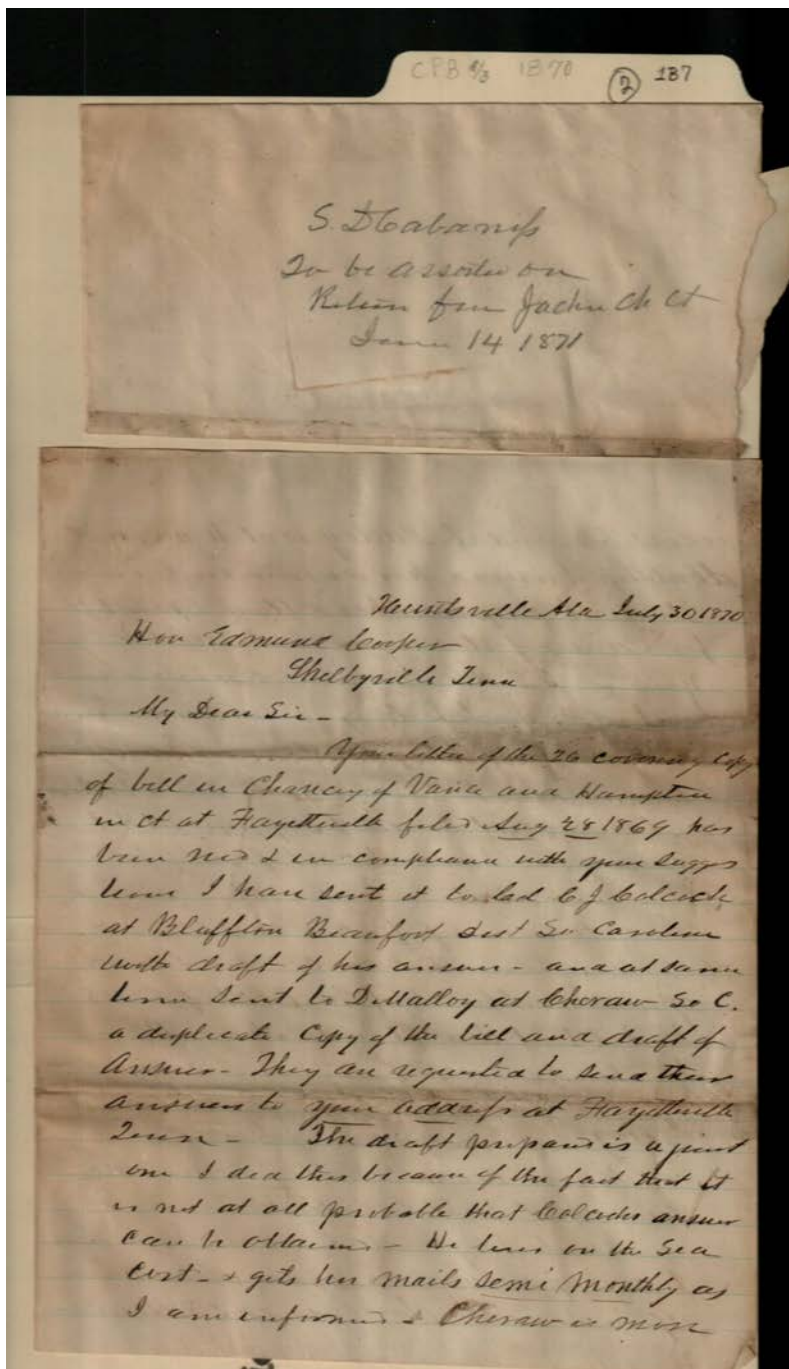 CPB 8/3 1870 2 187
S. D Cabaniss
To be assorted on
Return from Jackn Ch Ct
June 14 1871
Huntsville Ala July 30 1870
Hon Edmund Cooper
Shelbyville Tenn
My Dear Sir -
Your letter of the 26 covering copy
of bill in Chancey of Vance and Hampton
in ct at Fayetteville filed Aug 28 1869 has
been recd & in compliance with your sugges
tions I have sent it to Col C J Colcock
at Bluffton Beaufort Dist So Carolina
with draft of his answer - and at same
time sent to D Malloy at Cheraw So C.
a duplicate Copy of the bill and draft of
Answer - They are requested to send their
answers to your address at Fayetteville
Tenn - The draft prepared is a joint
one I did this because of the fact that it
is not at all probable that Colcocks answer
can be obtained - He lives on the Sea
Cost - & gets his mails semi monthly as
I am informed & Cheraw is more